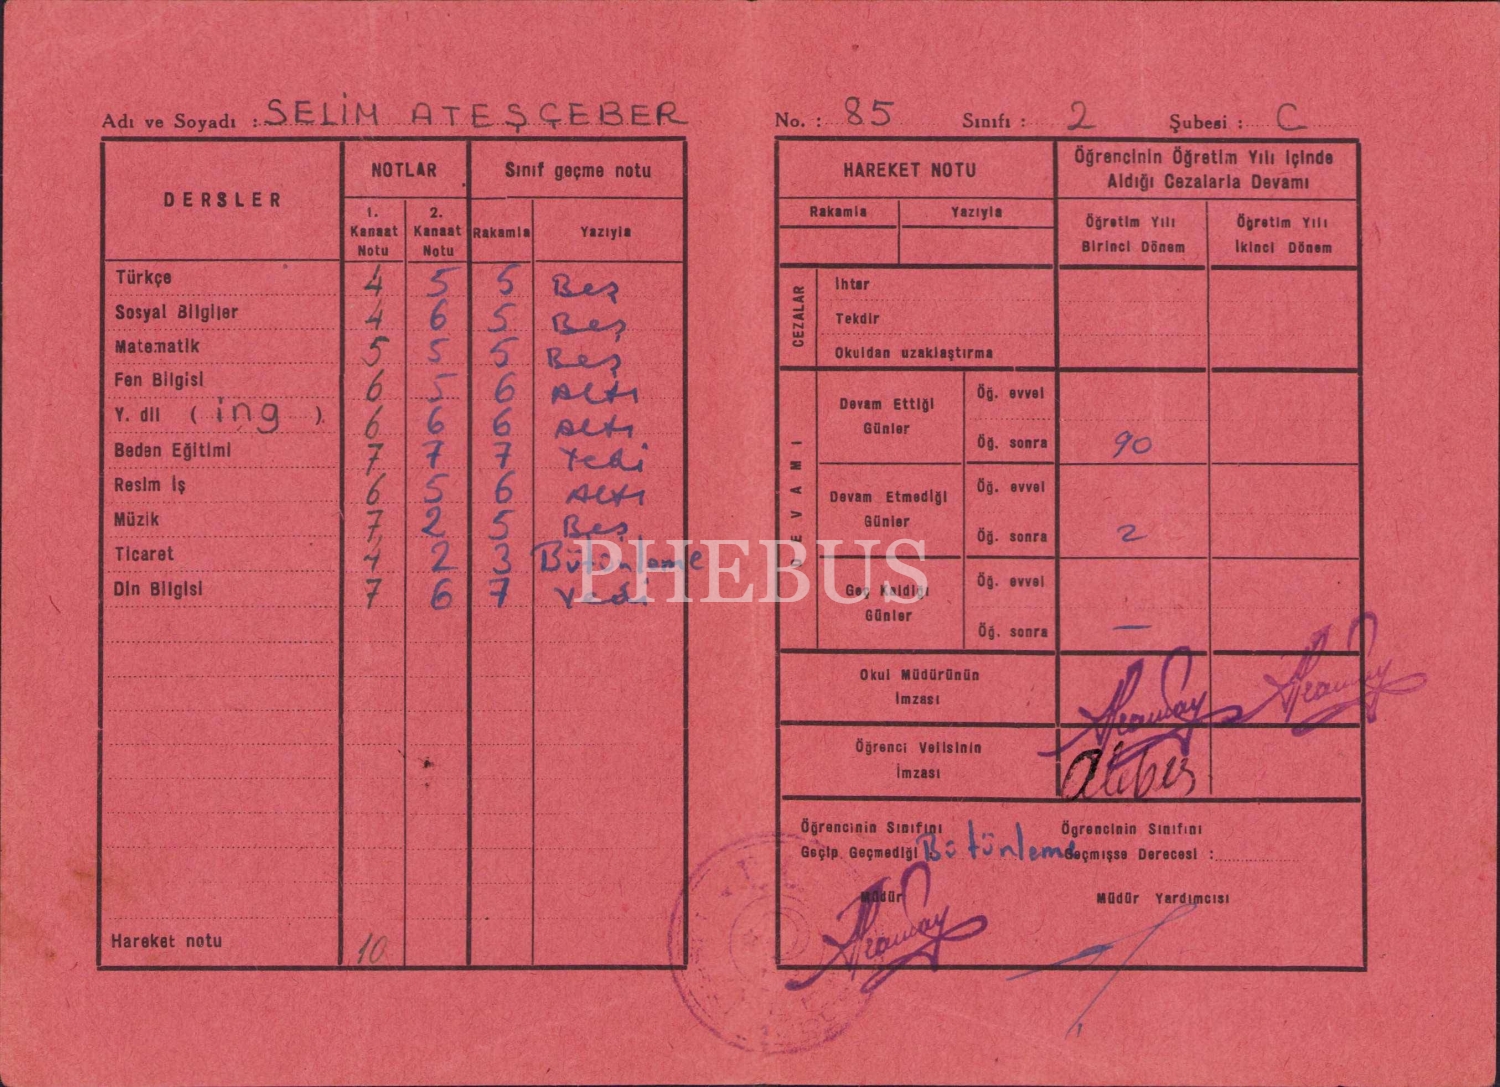 Adı ve Soyadı : SELİM ATEŞÇEBER
DERSLER
NOTLAR
Sınıf geçme notu
1. Kanaat Notu
2. Kanaat Notu
Rakamla
Yazıyla
Türkçe 4 5 5 Beş
Sosyal Bilgiler 4 6 5 Beş
Matematik 5 5 5 Beş
Fen Bilgisi 6 5 6 Altı
Y. dil ( ing ). 6 6 6 Altı
Beden Eğitimi 7 7 7 Yedi
Resim iş 6 5 6 Altı
Müzik 7 2 5 Beş
Ticaret 4 2 3 Bütünleme
Din Bilgisi 7 6 7 Yedi
Hareket notu 10
No. : 85 Sınıfı : 2 Şubesi : C
HAREKET NOTU
Öğrencinin Öğretim Yılı içinde
Aldığı Cezalarla Devamı
Rakamla
Yazıyla
Öğretim Yılı
Birinci Dönem
Öğretim Yılı
İkinci Dönem
CEZALAR
İhtar
Tekdir
Okuldan uzaklaştırma
DEVAMI
Devam Ettiği
Günler
Öğ. evvel
Öğ. sonra 90
Devam Etmediği
Günler
Öğ. evvel
Öğ. sonra 2
Geç Kaldığı
Günler
Öğ. evvel
Öğ. sonra —
Okul Müdürünün
İmzası
Öğrenci Velisinin
İmzası
Öğrencinin Sınıfını
Geçip Geçmediği Bütünleme
Öğrencinin Sınıfını
Geçmişse Derecesi :
Müdür
Müdür Yardımcısı
PHEBUS